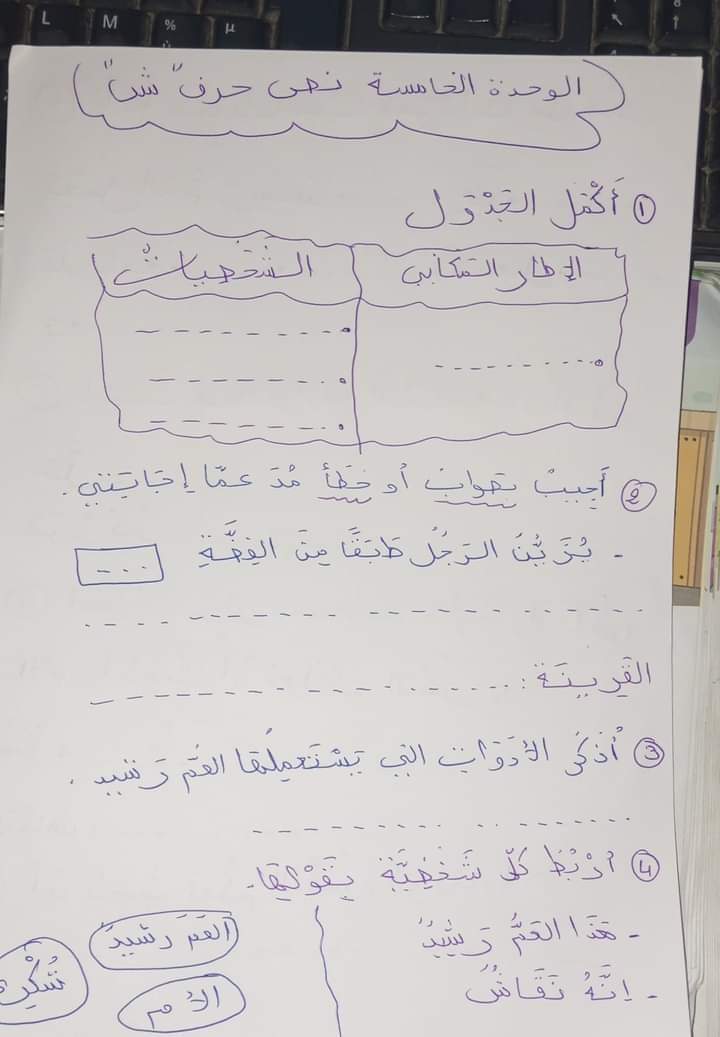 الوحدة الخامسة نص حرف "ش"
① أَكْمل الجَدْوَل
الإطار المكاني
الشّخصيات
② أَجيبُ بصواب أو خطأ مُدَعمّا إجَابَتِي.
- يُزَيِّنُ الرَّجُل طَبَقًا مِنَ الفِضَّةِ ...
القَرِينَة:
③ أَذْكُر الأدَوَاتِ التي يَسْتَعمِلُهَا العَم رَشيد.
④ أرْبُط كلّ شَخْصِيَّةٍ بِقَوْلِهَا.
- هَذَا العَمُّ رَشِيدُ
- إنَّهُ نَقَّاشُ
العَمّ رشيد
الأم